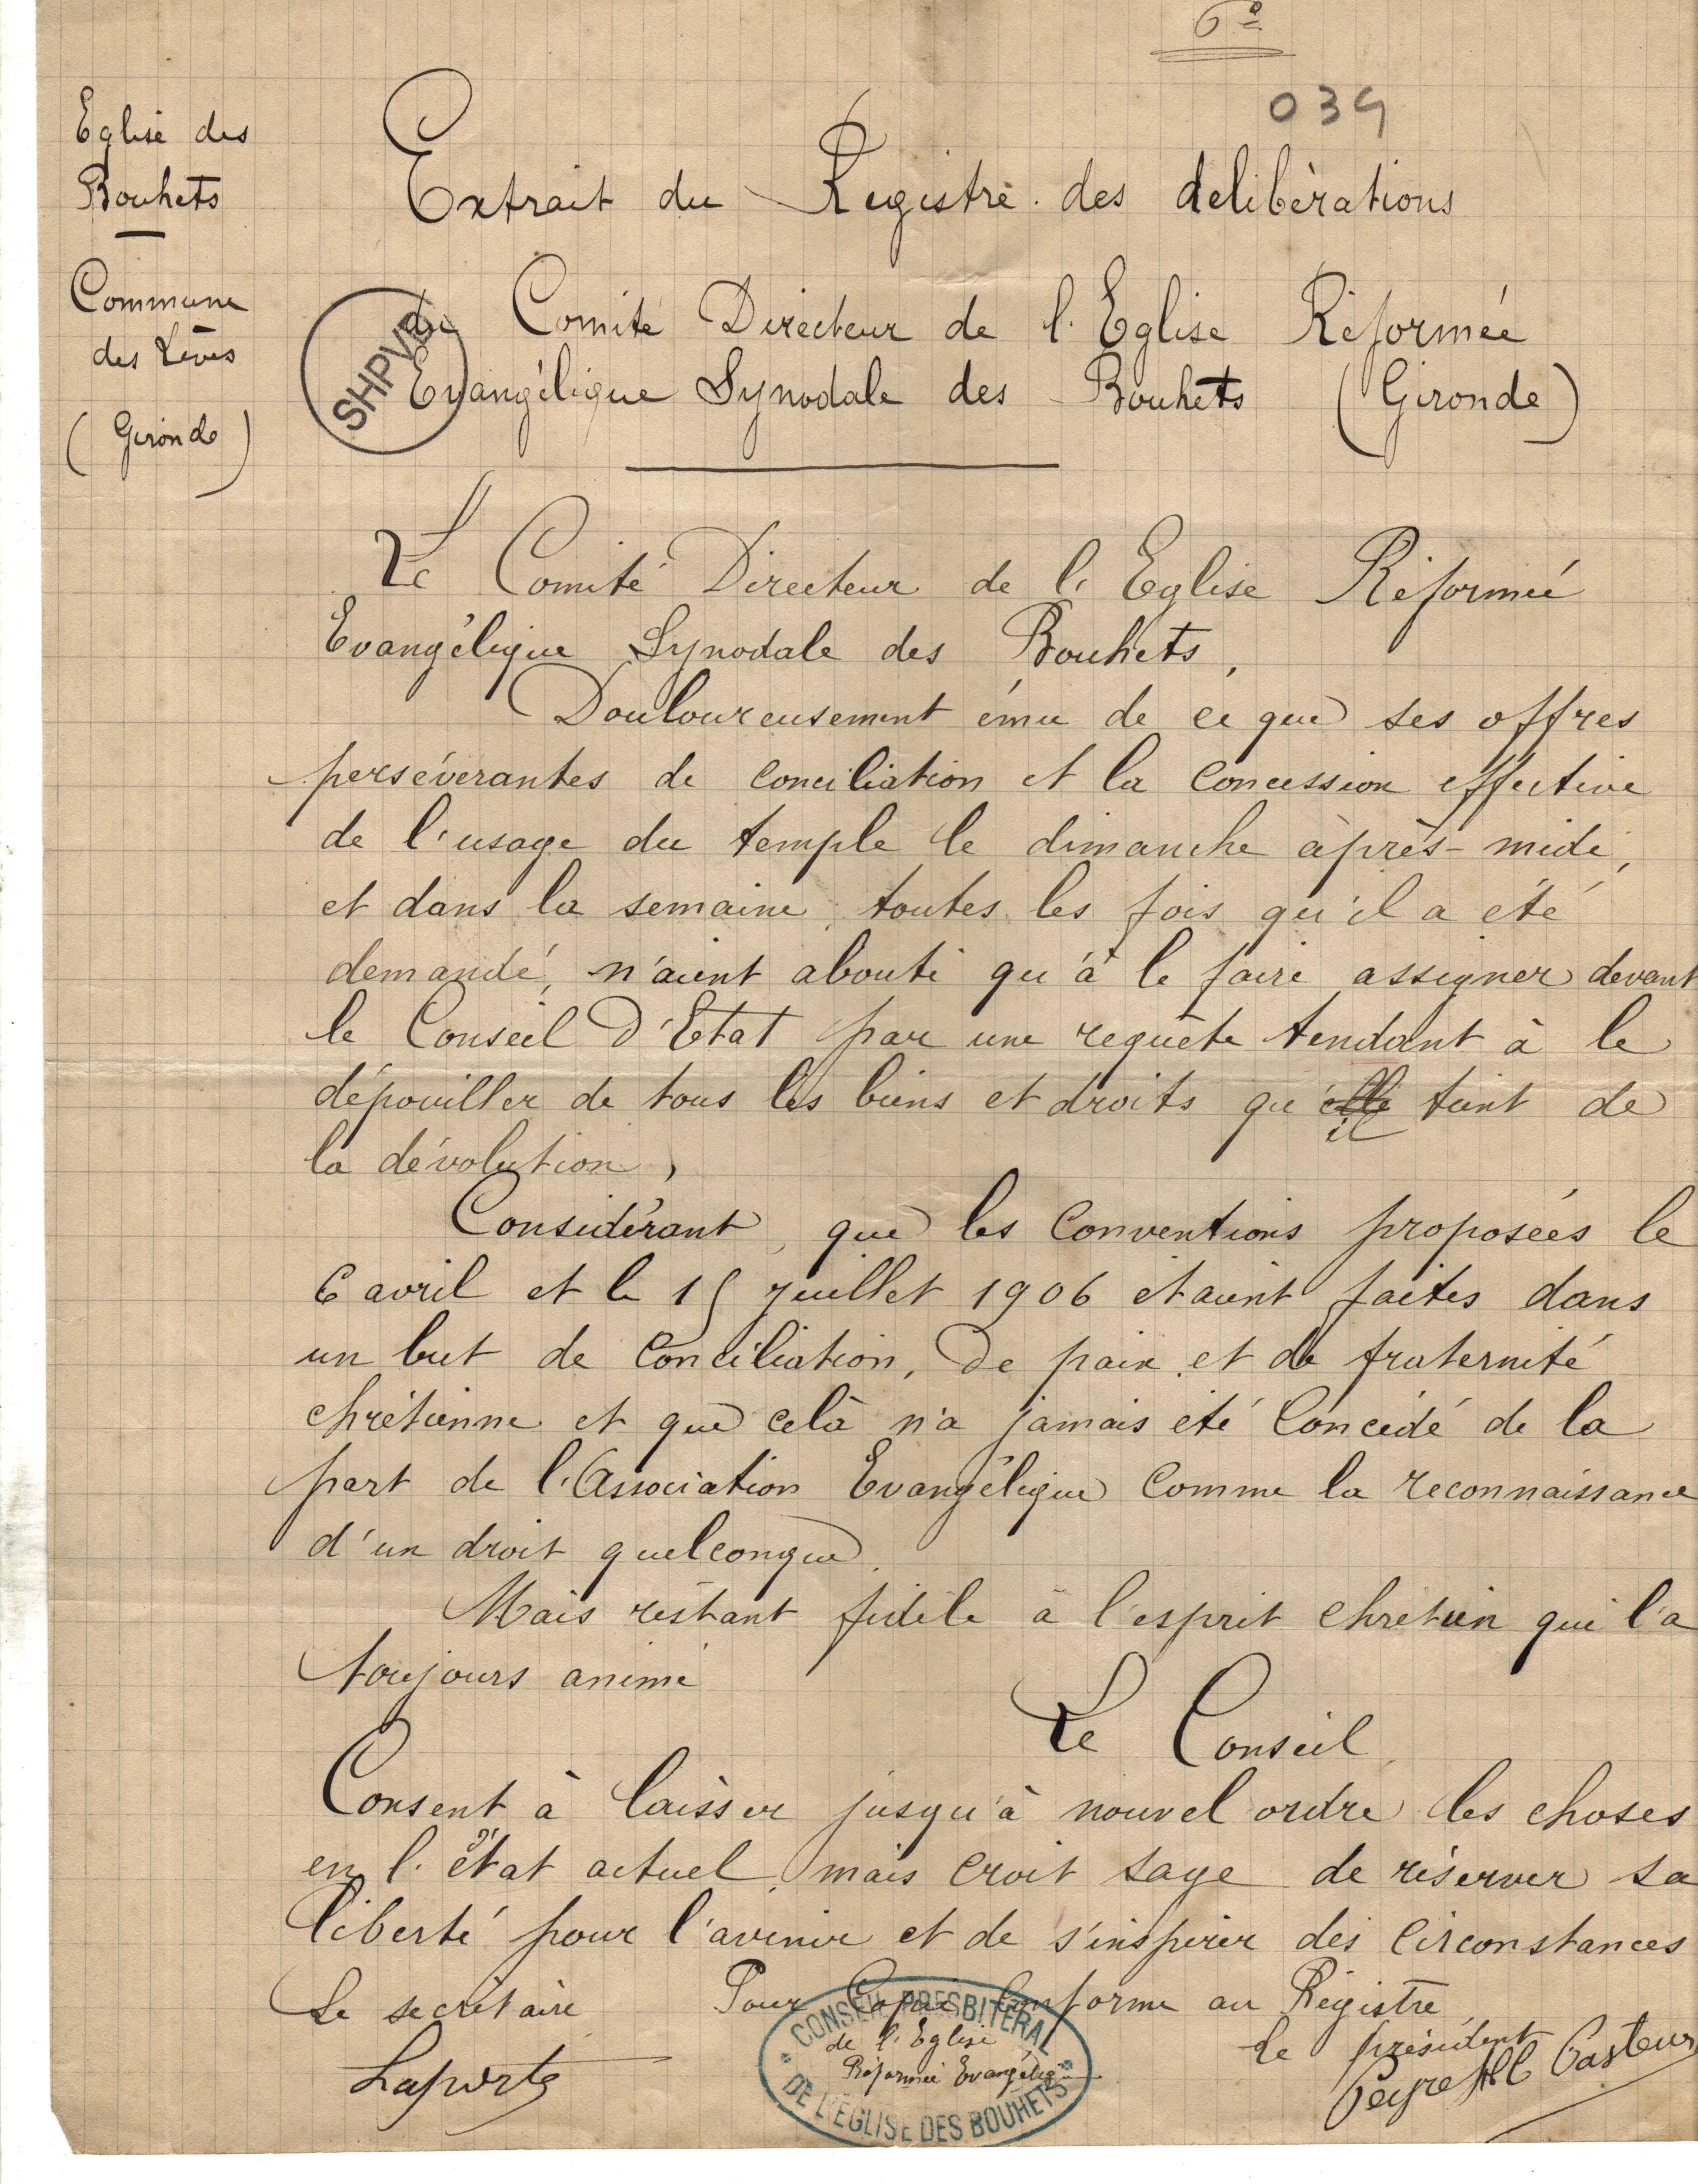 6º
039
Eglise des
Bouhets
Commune
des Lèves
(Gironde)
Extrait du Registre des délibérations
du Comité Directeur de l'Eglise Réformée
SHPVD
Evangélique Synodale des Bouhets (Gironde)
Le Comité Directeur de l'Eglise Réformée
Evangélique Synodale des Bouhets,
Douloureusement ému de ce que ses offres
persévérantes de conciliation et la concession effective
de l'usage du temple le dimanche après-midi,
et dans la semaine, toutes les fois qu'il a été
demandé, n'aient abouti qu'à le faire assigner devant
le Conseil d'Etat par une requête tendant à le
dépouiller de tous les biens et droits qu'il tient de
la dévolution,
Considérant, que les conventions proposées le
6 avril et le 15 juillet 1906 étaient faites dans
un but de conciliation, de paix et de fraternité
chrétienne et que celà n'a jamais été concédé de la
part de l'Association Evangélique comme la reconnaissance
d'un droit quelconque.
Mais restant fidèle à l'esprit chrétien qui l'a
toujours animé
Le Conseil
Consent à laisser jusqu'à nouvel ordre les choses
en l'état actuel, mais croit sage de réserver sa
liberté pour l'avenir et de s'inspirer des circonstances
Le secrétaire Pour Copie Conforme au Registre
Le président
CONSEIL PRESBITERAL
de l'Eglise
Réformée Evangélique
DE L'EGLISE DES BOUHETS
Laporte
Peyre Pasteur